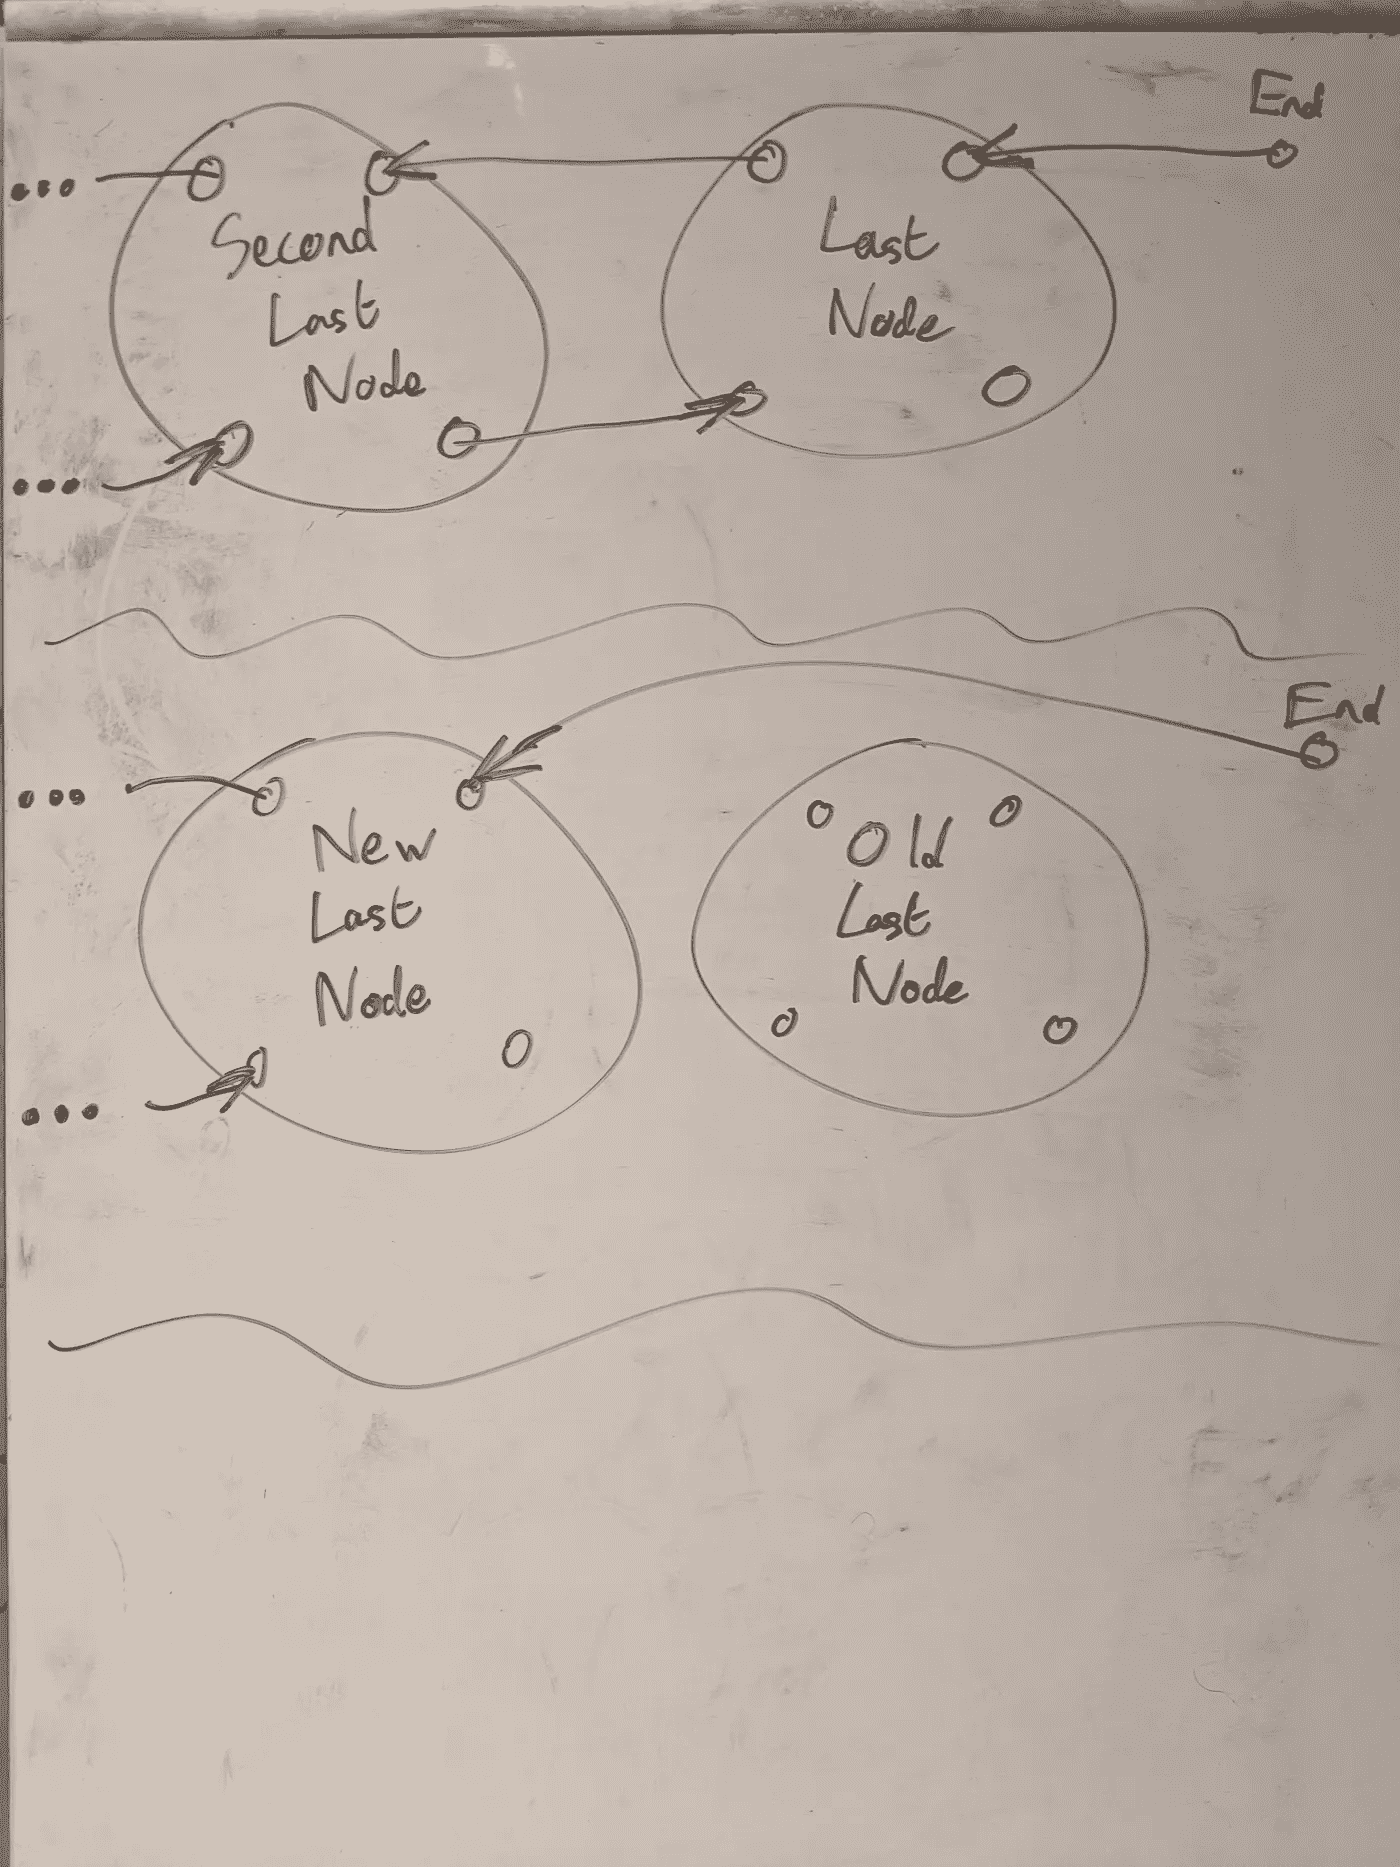 End
Second
Last
Node
Last
Node
...
...
End
New
Last
Node
Old
Last
Node
...
...